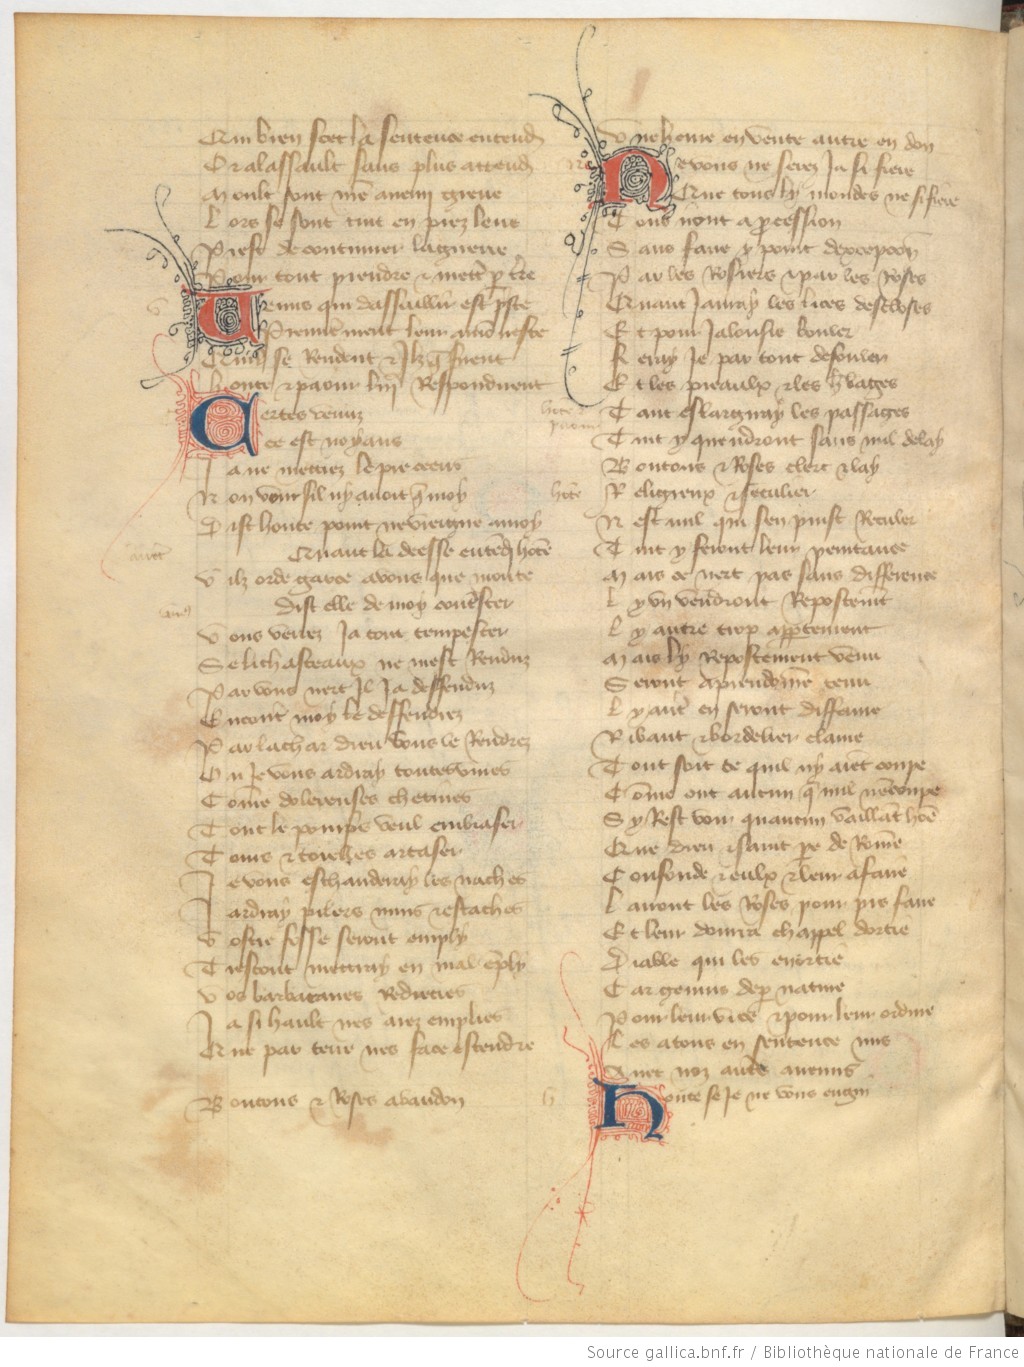 Qui bien scet la sentence entend
Or a lassault sans plus attend
Moult sont mes anemi greue
Lors se sont tint en piez leue
Prest de continuer la guerre
Pour tout prendre & mettr p tre
Uenus qui dassaillir est pste
Premierement leur amoneste
Quil se Rendent & Ilz q firent
honte & paour lui Respondirent
Certes venus
ce est noyans
Ia ne mettrez le pie ceens
Non voir sil ny auoit q moy
Dist honte point ne mesmoy
Quant la deesse entedi hote
Vilz orde garce a vous que monte
Dist elle de moy contster
Vous verrez Ia tout tempester
Se li chasteaulx ne mest Renduz
Par vous nert Il Ia deffenduz
Encontr moy le deffendrez
Par la char dieu vous le Rendrez
Ou Je vous ardray toutes viues
Come dolereuses chetiues
Tout le pourpris vueil embraser
Tours & torelles arraser
Je vous eschauderay les naches
J ardray pilers murs & estaches
Vostre fosse seront emply
Trestout mettray en mal eply
Vos barbacanes Redrecies
Ja si hault nes airez emplies
Que par terre nes face estendre
Boutons & Roses abandon
Vne heure en vente autre en don
Ne vous ne serez Ja si fiere
Que tous ly mondes ne si fiere
Tous iront a pcession
Sans faire y point dexcepcon
Par les Rosiers & par les Roses
Quant Jauray les lices descloses
Et pour Jalousie bouler
Feray Je par tout defouler
Et les preaulx & les hbages
Tant eslargiray les passages
Tuit y queudront sans nul delay
Boutons & Roses clerc & lay
Religieux & seculier
Nest nul qui sen puist Reculer
Tuit y feront leur penitance
Mais ce nert pas sans difference
Ly vn vendront Repostemt
Ly autre trop appertement
Mais ly Repostement venu
Seront a preudome tenu
Ly autr en seront diffame
Ribaut & bordelier clame
Tout soit ce quil ny aiet coupe
Come ont aucun q nul nencoupe
Sy Rest voir quaucun vaillat hoe
Que dieu & saint pe de Rome
Confonde & eulx & leur afaire
Lairont les Roses pour pis faire
Et leur donrra chappel dortie
Diable qui les enortie
Car genius de p nature
Pour leur vice & pour leur ordure
Les a tous en sentence mis
Auec noz autrs anemis
Honte se Je ne vous engin